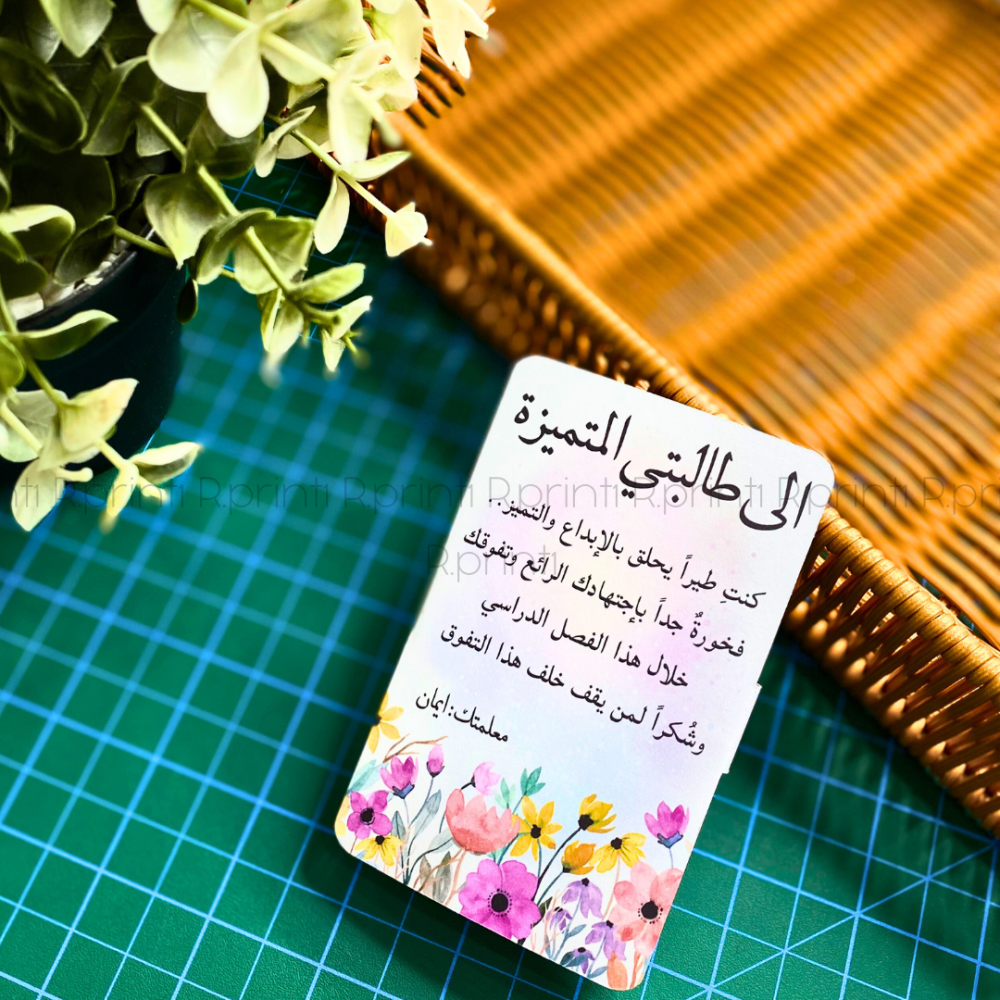 الى طالبتي المتميزة
كنتِ طيراً يحلق بالإبداع والتميز..
فخورةٌ جداً بإجتهادك الرائع وتفوقك
خلال هذا الفصل الدراسي
وشُكراً لمن يقف خلف هذا التفوق
معلمتك:ايمان
R.printi R.printi R.printi R.printi R.printi R.printi R.printi
R.printi